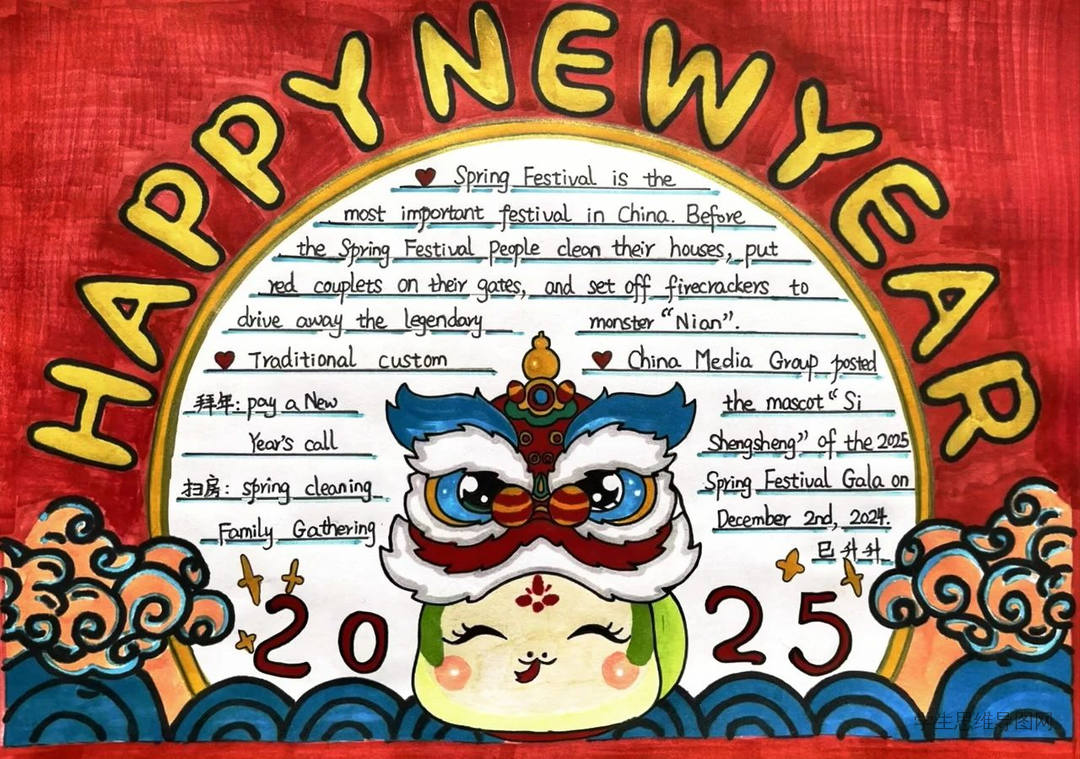 HAPPY NEW YEAR
Spring Festival is the
most important festival in China. Before
the Spring Festival People clean their houses, put
red couplets on their gates, and set off firecrackers to
drive away the legendary monster “Nian”.
Traditional custom
拜年: pay a New
Year's call
扫房: spring cleaning
Family Gathering
China Media Group posted
the mascot “Si
Shengsheng” of the 2025
Spring Festival Gala on
December 2nd, 2024.
巳升升
2025
学生思维导图网